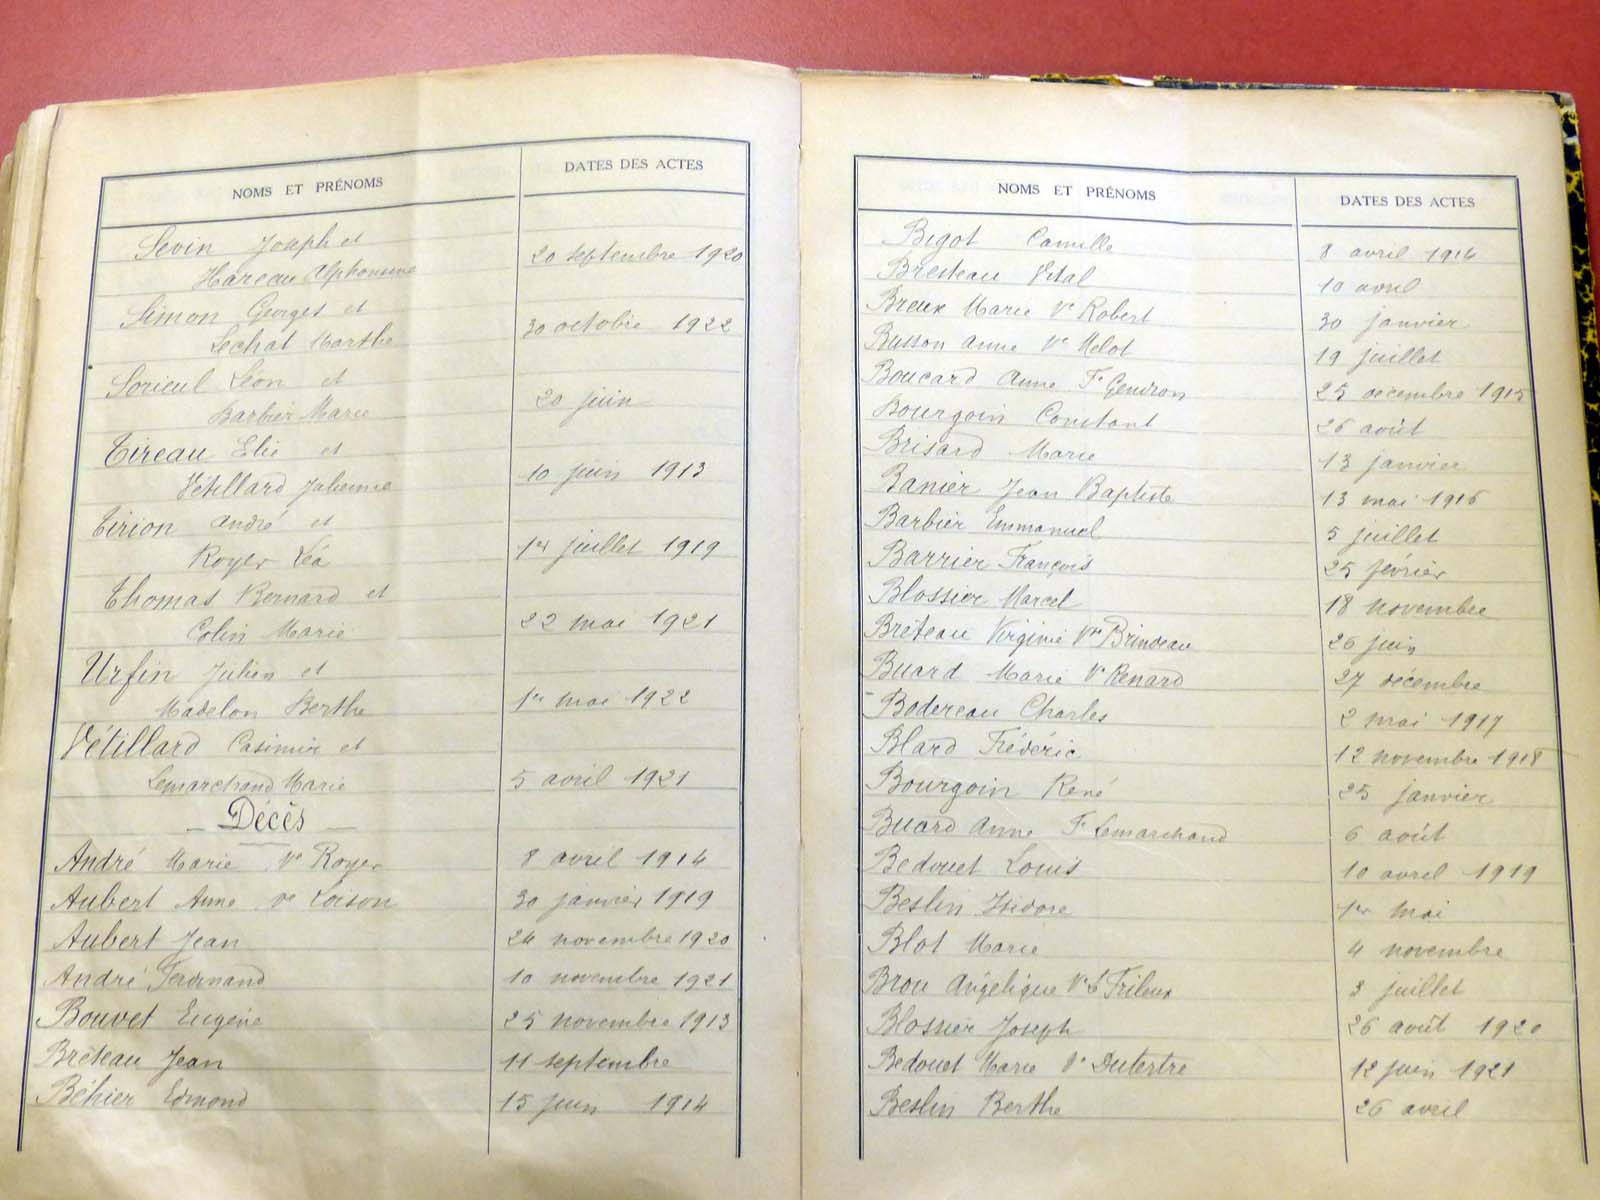 NOMS ET PRÉNOMS DATES DES ACTES
Sevin Joseph et
Hareau Alphonsine 20 septembre 1920
Simon Georges et
Lechat Marthe 30 octobre 1922
Sorieul Léon et
Barbier Marie 20 juin
Tireau Elie et
Vétillard Julienne 10 juin 1913
Tirion André et
Royer Léa 1er juillet 1919
Thomas Bernard et
Colin Marie 22 mai 1921
Urfin Julien et
Madelon Berthe 1er mai 1922
Vétillard Casimir et
Lemarchand Marie 5 avril 1921
Décès
André Marie Ve Royer 8 avril 1914
Aubert Anne Ve Loison 30 janvier 1919
Aubert Jean 24 novembre 1920
André Ferdinand 10 novembre 1921
Bouvet Eugène 25 novembre 1913
Bréteau Jean 11 septembre
Béhier Edmond 15 juin 1914
NOMS ET PRÉNOMS DATES DES ACTES
Bigot Camille 8 avril 1914
Bresteau Vital 10 avril
Breux Marie Ve Robert 30 janvier
Busson Anne Ve Melot 19 juillet
Boucard Anne Fe Gendron 25 décembre 1915
Bourgoin Constant 26 août
Brisard Marie 13 janvier
Banier Jean Baptiste 13 mai 1916
Barbier Emmanuel 5 juillet
Barrier François 25 février
Blossier Marcel 18 novembre
Bréteau Virginie Ve Brindeau 26 juin
Buard Marie Ve Renard 27 décembre
Bodereau Charles 2 mai 1917
Blard Frédéric 12 novembre 1918
Bourgoin René 25 janvier
Buard Anne Fe Lemarchand 6 août
Bedouet Louis 10 avril 1919
Beslin Isidore 1er mai
Blot Marie 4 novembre
Brou Angélique Ve Frileux 3 juillet
Blossier Joseph 26 août 1920
Bedouet Marie Ve Dutertre 12 juin 1921
Beslin Berthe 26 avril